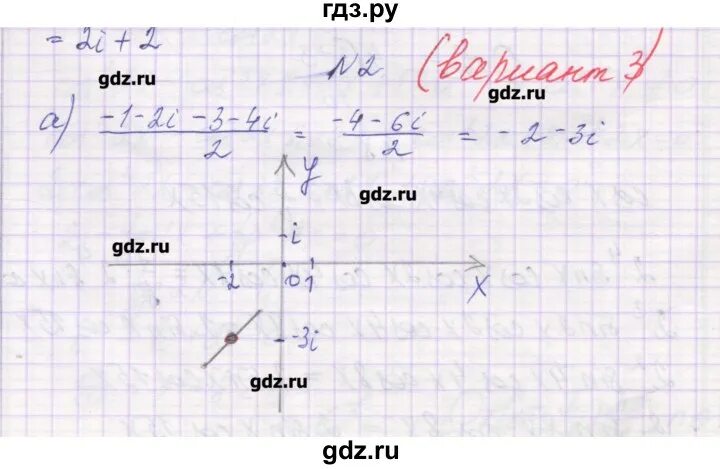 гдз.ру
= 2i + 2
gdz.ru
N2 (вариант 3)
gdz.ru
а) (-1-2i -3-4i)/2 = (-4-6i)/2 = -2-3i
y
gdz.ru
i
gdz.ru
-2 0 1 x
-3i
gdz.ru
gdz.ru